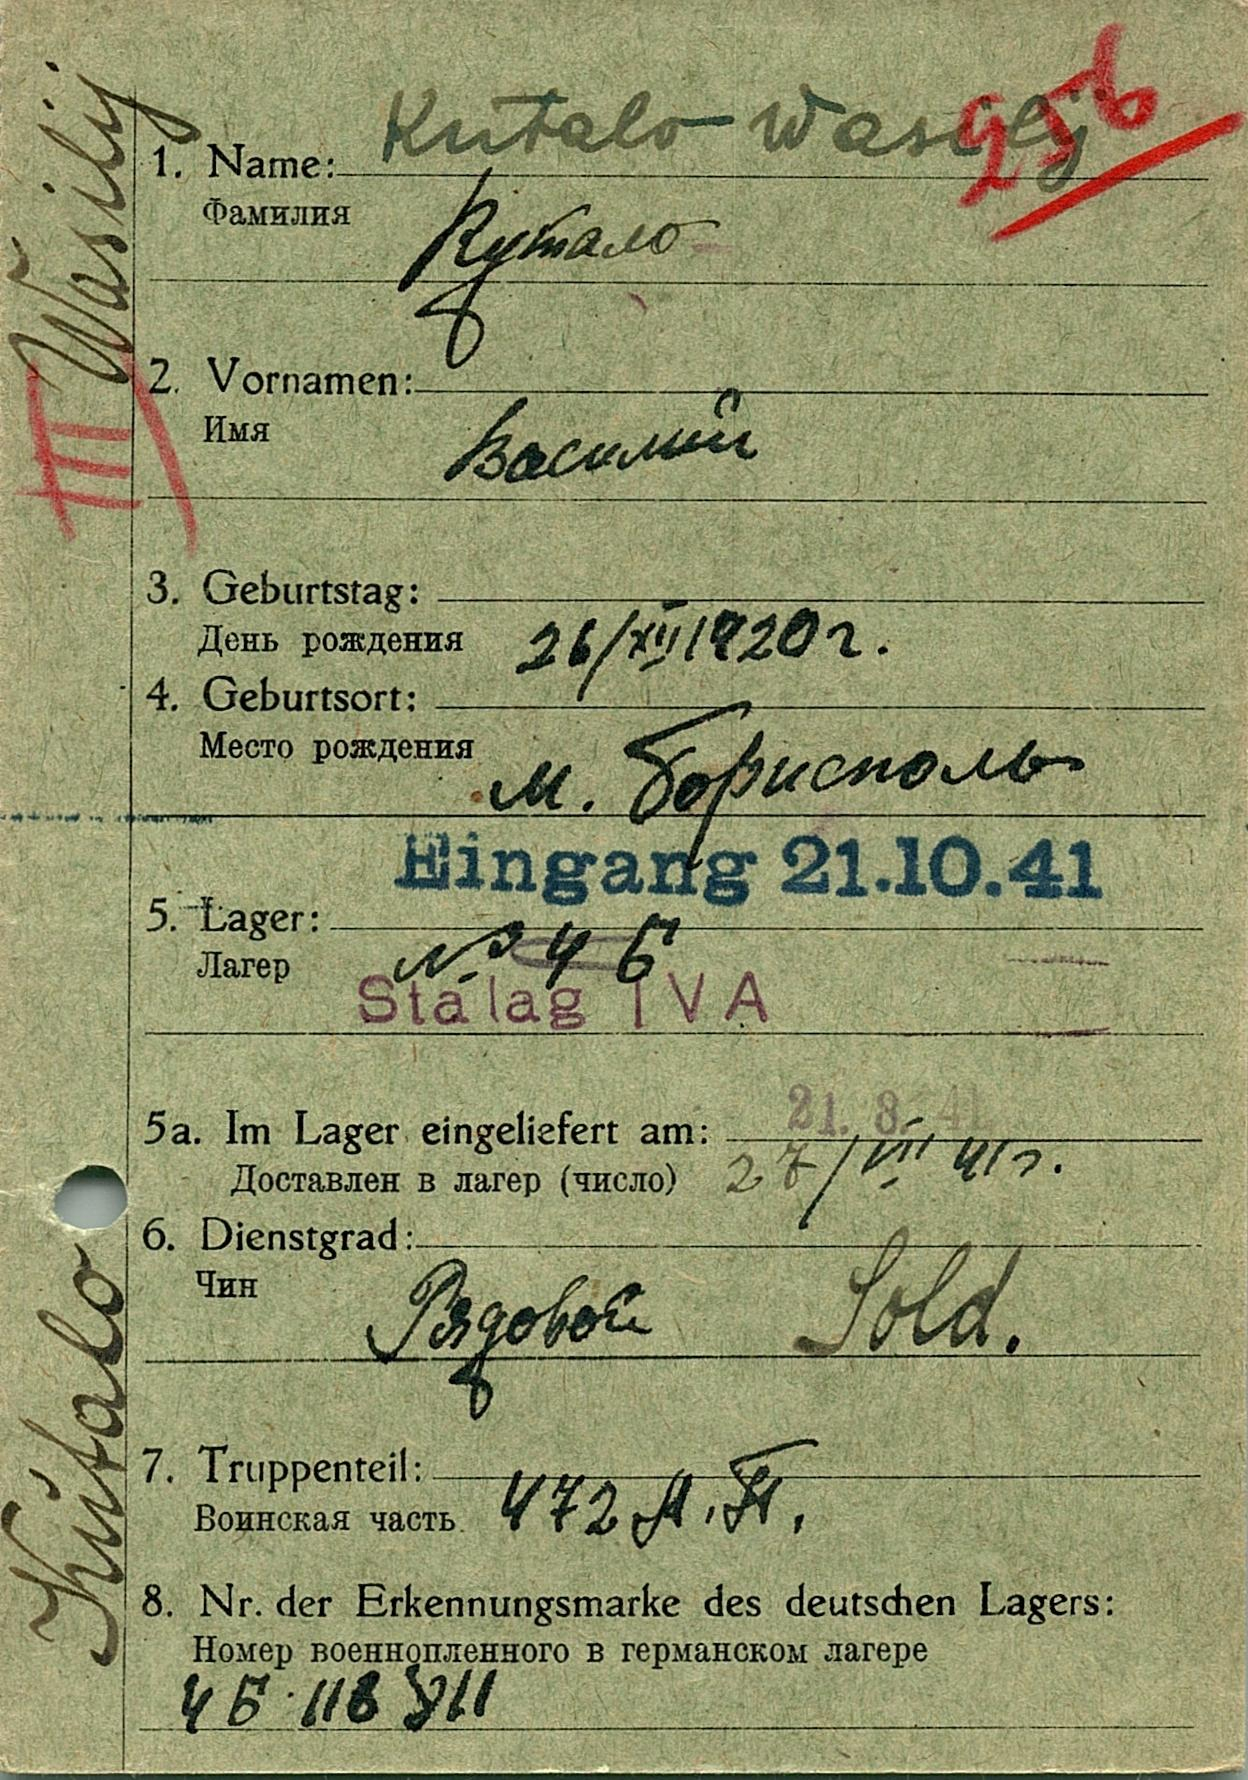 Kutalo Wasilij
956
1. Name:
Фамилия
Кутало
2. Vornamen:
Имя
Василий
3. Geburtstag:
День рождения
26/XII 1920 г.
4. Geburtsort:
Место рождения
м. Борисполь
Eingang 21.10.41
5. Lager:
Лагер
№ 4 Б
Stalag IV A
5a. Im Lager eingeliefert am:
21. 8. 41
Доставлен в лагер (число)
27/VIII 41 г.
6. Dienstgrad:
Чин
Рядовой Sold.
7. Truppenteil:
Воинская часть
472 А.П.
8. Nr. der Erkennungsmarke des deutschen Lagers:
Номер военнопленного в германском лагере
4Б
Kutalo Wasilij
III